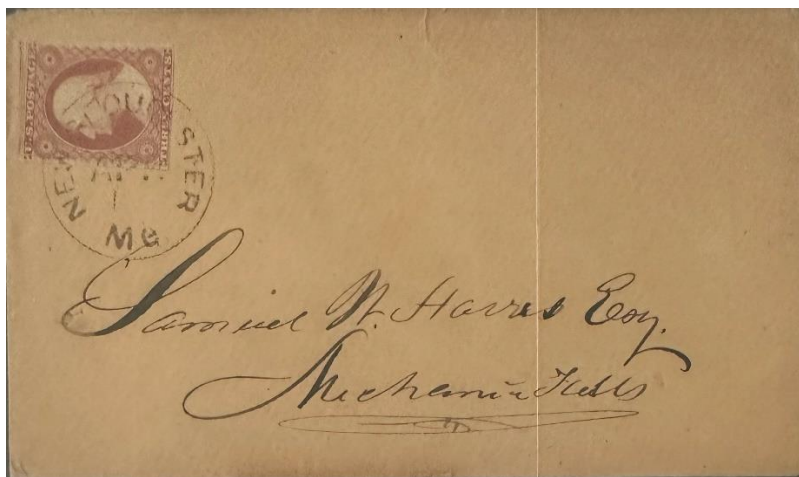 U.S. POSTAGE
THREE CENTS
NEW GLOUCESTER
APR
1
Me
Samuel N. Harris Esq.
Mechanic Falls